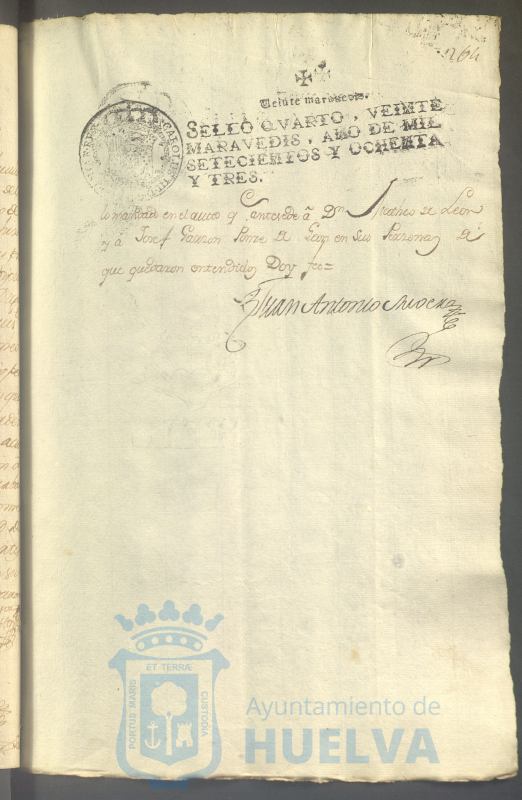 264
Veinte maravedis.
SELLO QVARTO, VEINTE
MARAVEDIS, AÑO DE MIL
SETECIENTOS Y OCHENTA
Y TRES.
CAROLUS III
lo mandado en el auto q. antecede â Dn. Matheo de Leon
y â Josef Garzon Ponze de Leon en sus Personas de
que quedaron entendidos Doy fee=
Juan Antonio
ET TERRÆ
PORTUS MARIS
CUSTODIA
Ayuntamiento de
HUELVA